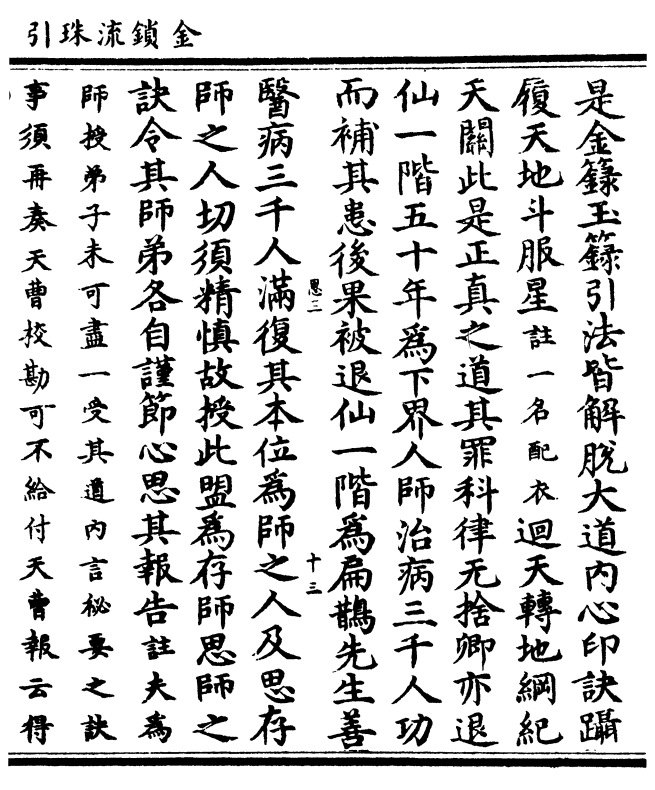 金鎖流珠引
是金籙玉籙引法皆解脫大道內心印訣躡
履天地斗服星註一名配衣迴天轉地綱紀
天關此是正真之道其罪科律无捨卿亦退
仙一階五十年為下界人師治病三千人功
而補其患後果被退仙一階為扁鵲先生善
思三
十三
醫病三千人滿復其本位為師之人及思存
師之人切須精慎故授此盟為存師思師之
訣令其師弟各自謹節心思其報告註夫為
師授弟子未可盡一受其道內言秘要之訣
事須再奏天曹校勘可不給付天曹報云得